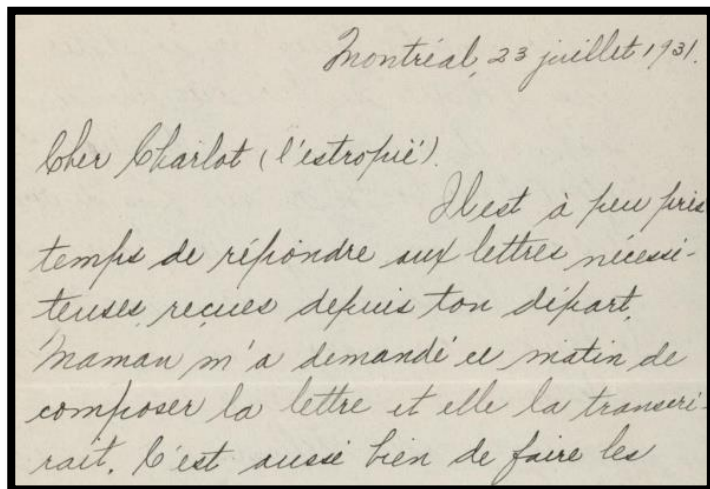 Montréal, 23 juillet 1931.
Cher Charlot (l'estropié).
Il est à peu près
temps de répondre aux lettres nécessi-
teuses reçues depuis ton départ.
Maman m'a demandé ce matin de
composer la lettre et elle la transcri-
rait. C'est aussi bien de faire les